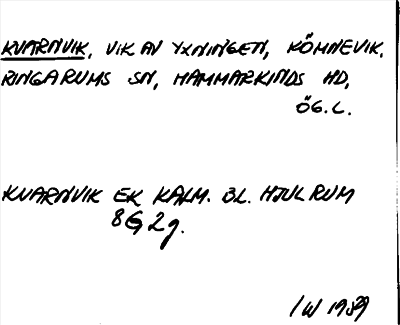 KVARNVIK, VIK AV YXNINGEN, KÖMNEVIK,
RINGARUMS SN, HAMMARKINDS HD,
ÖG. L.
KVARNVIK EK KALM. BL. HJULRUM
8G 2g.
IW 1989